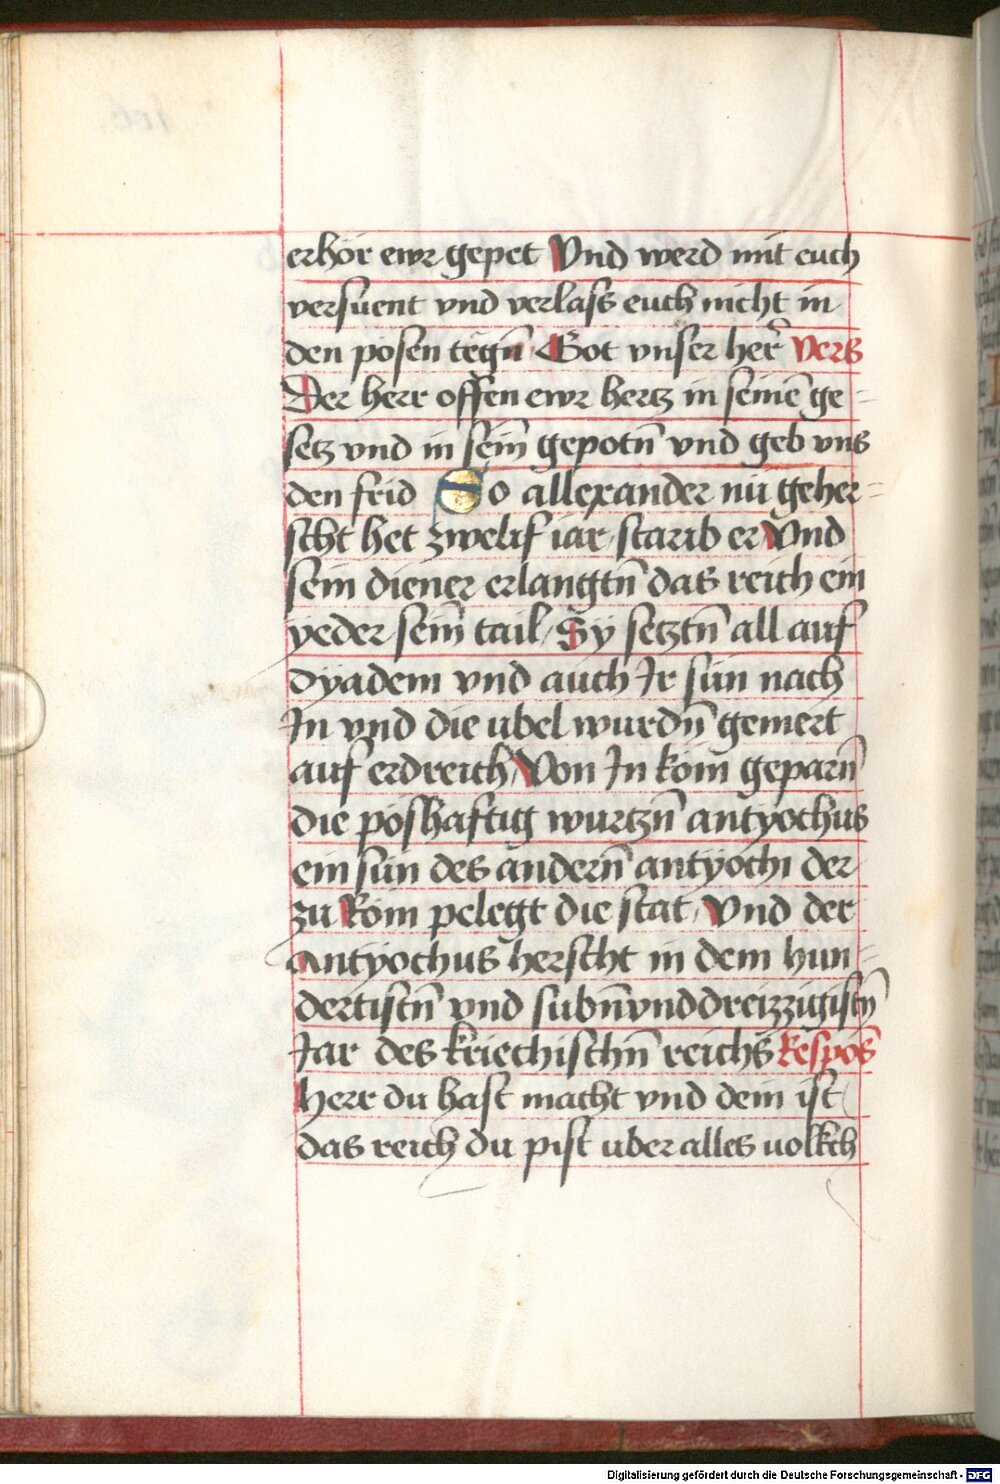 erhör ewr gepet Vnd werd mit euch
versuent vnd verlass euch nicht in
den pösen tëgn̄ Got vnser her̄ Vers
Der herr offen ewr hertz in seinē ge=
setz vnd in sein̄ gepotn̄ vnd geb vns
den frid So allexander nu geher=
scht het zwelif iar, starib er Vnd
sein diener erlangtn̄ das reich ein
yeder sein̄ tail, Sy setztn̄ all auf
dyadem vnd auch Ir sün nach
In vnd die ubel wurdn̄ gemert
auf erdreich, Von In köm geparn̄
die poshaftig wurtzn̄ antyochus
ein sun des andern̄ antyochi der
zu Rom pelegt die stat, Vnd der
Antyochus herscht in dem hun=
dertistn̄ vnd subn̄vnddreizzigistn̄
Iar des kriechischn̄ reichs Respōs
Herr du hast macht vnd dein ist
das reich du pist uber alles uolkch
Digitalisierung gefördert durch die Deutsche Forschungsgemeinschaft - DFG